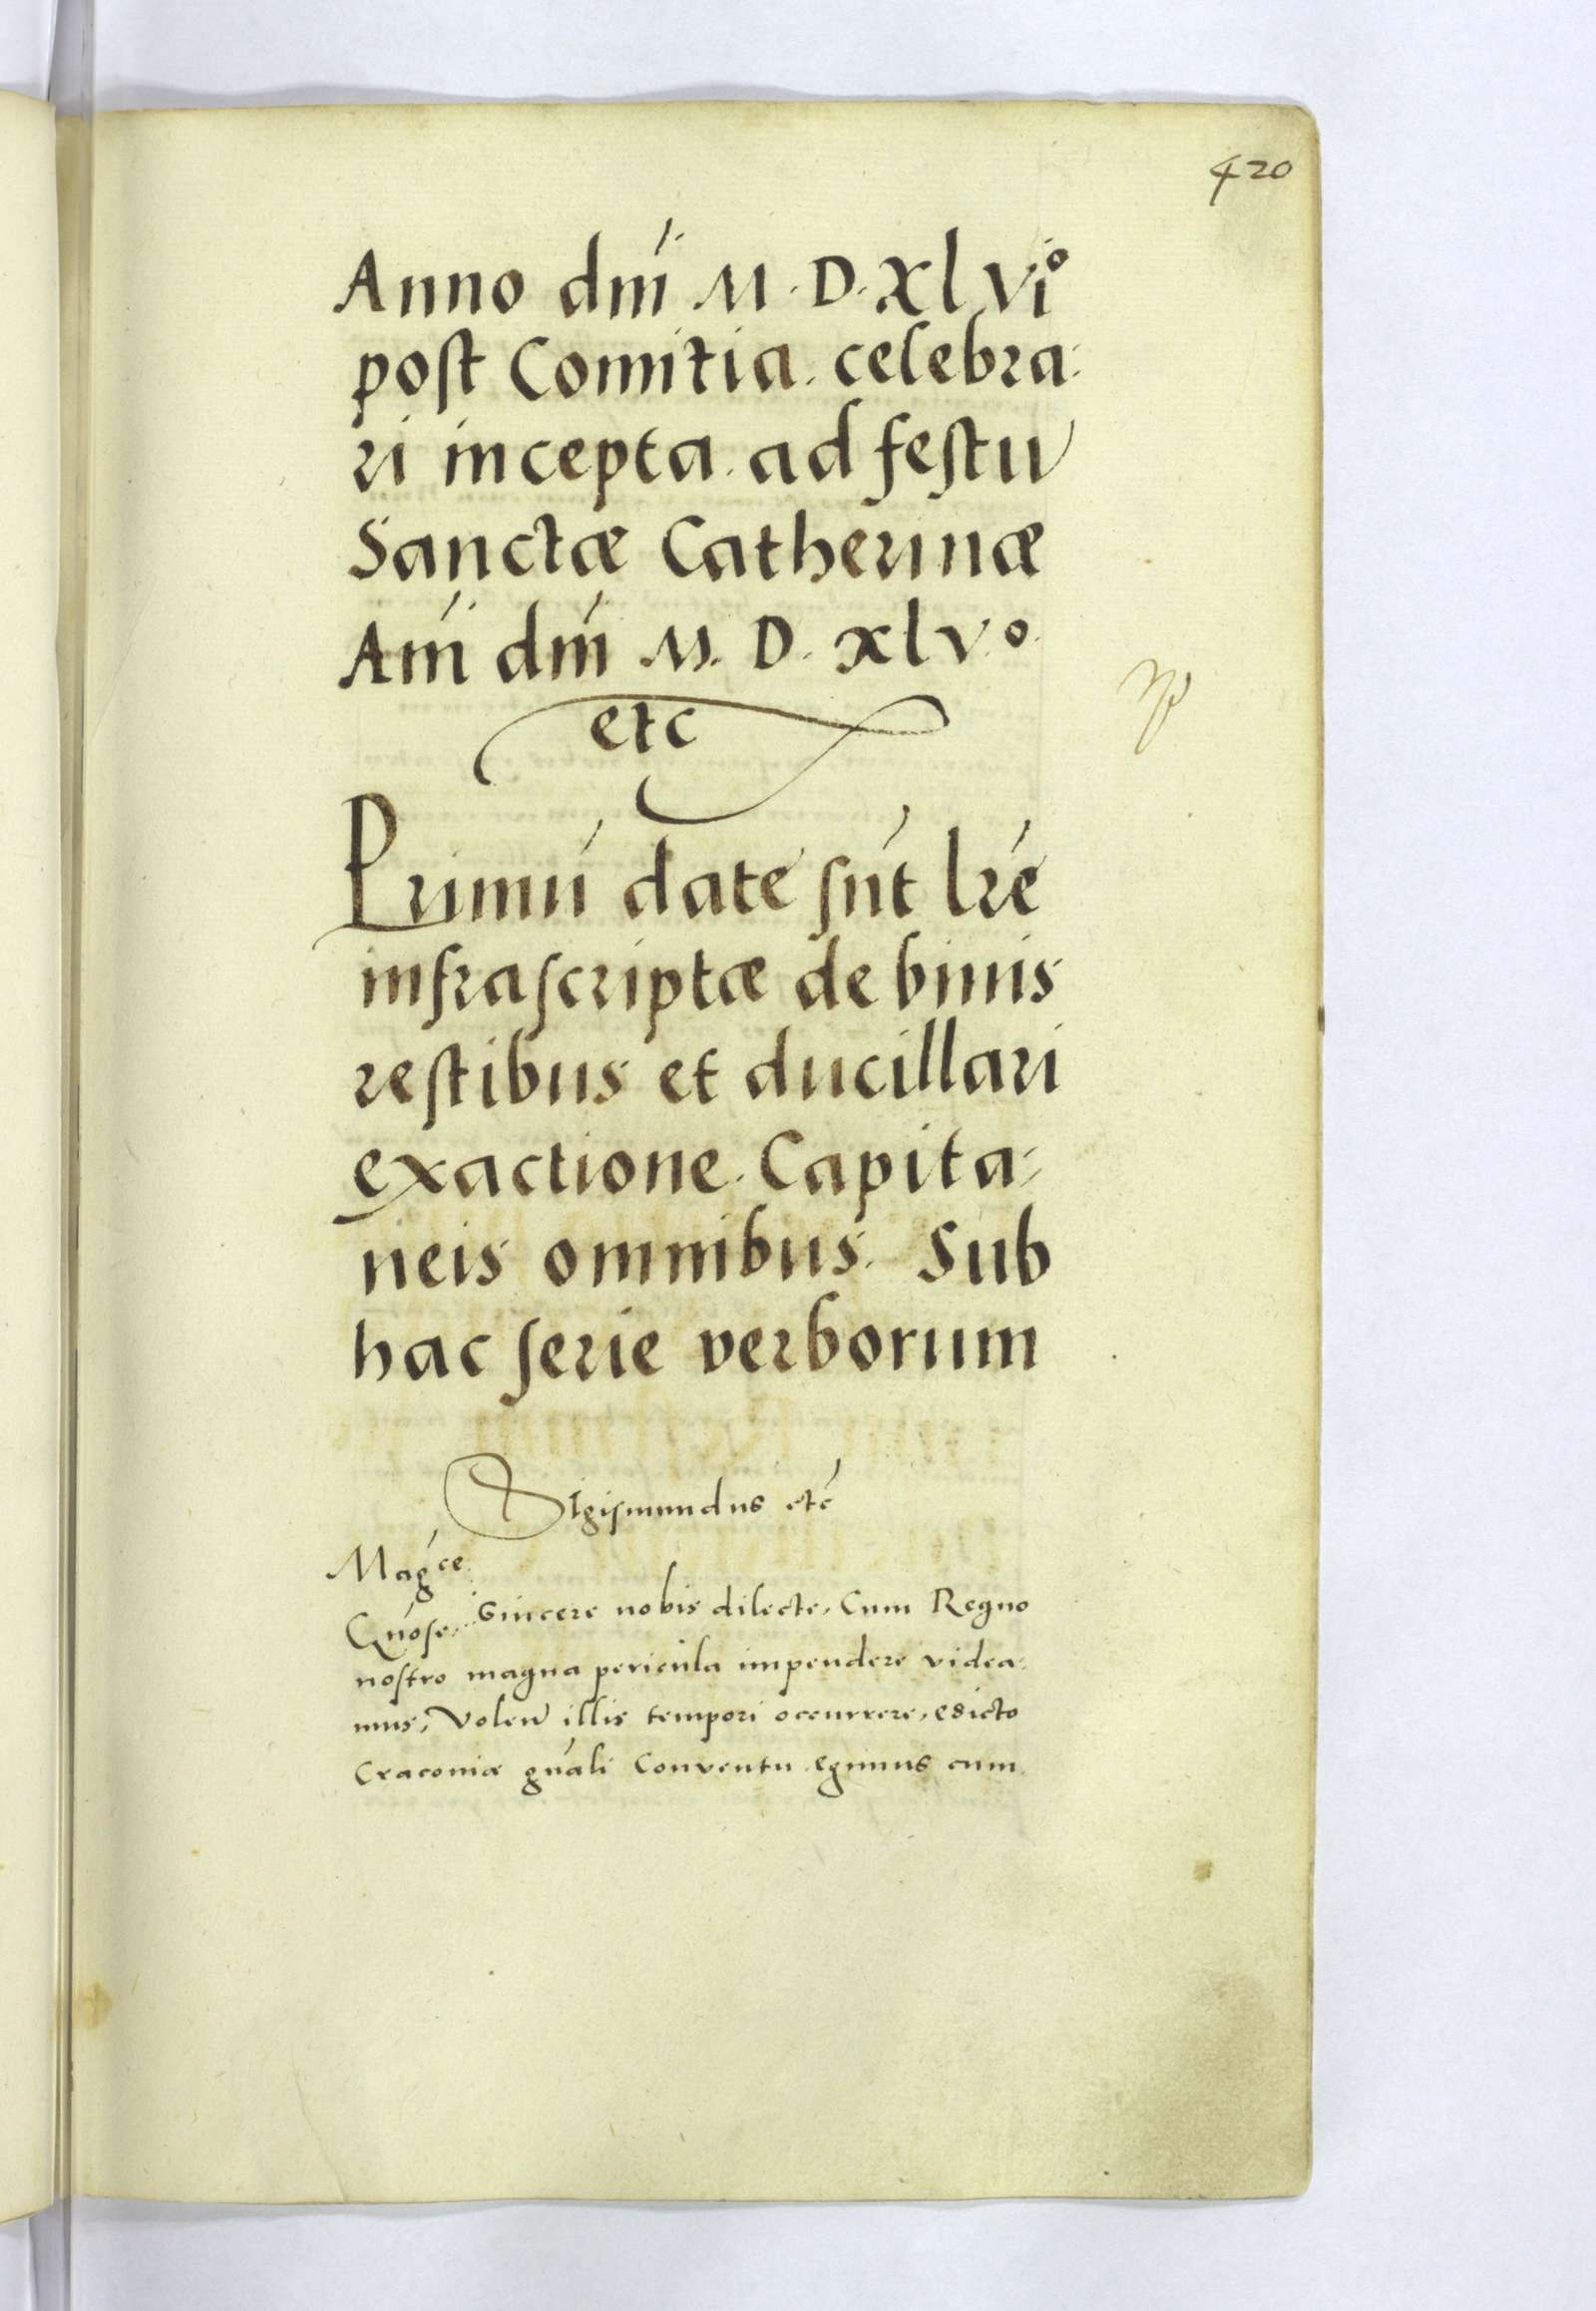 420
Anno dm̃i M. D. Xlvi°
post Comitia. celebra:
ri incepta. ad festu
Sanctæ Catherinæ
Añi dñi M. D. xlv°.
etc
Primũ date sũt lr̃e
infrascriptæ de binis
restibus et ducillari
exactione. Capita:
neis omnibus. Sub
hac serie verborum
Sigismundus etc̃
Mag̃ce
Gñose, Sincere nobis dilecte, Cum Regno
nostro magna pericula impendere videa:
mus, Volen illis tempori occurrere, edicto
Craconiæ gñali Conventu egimus cum